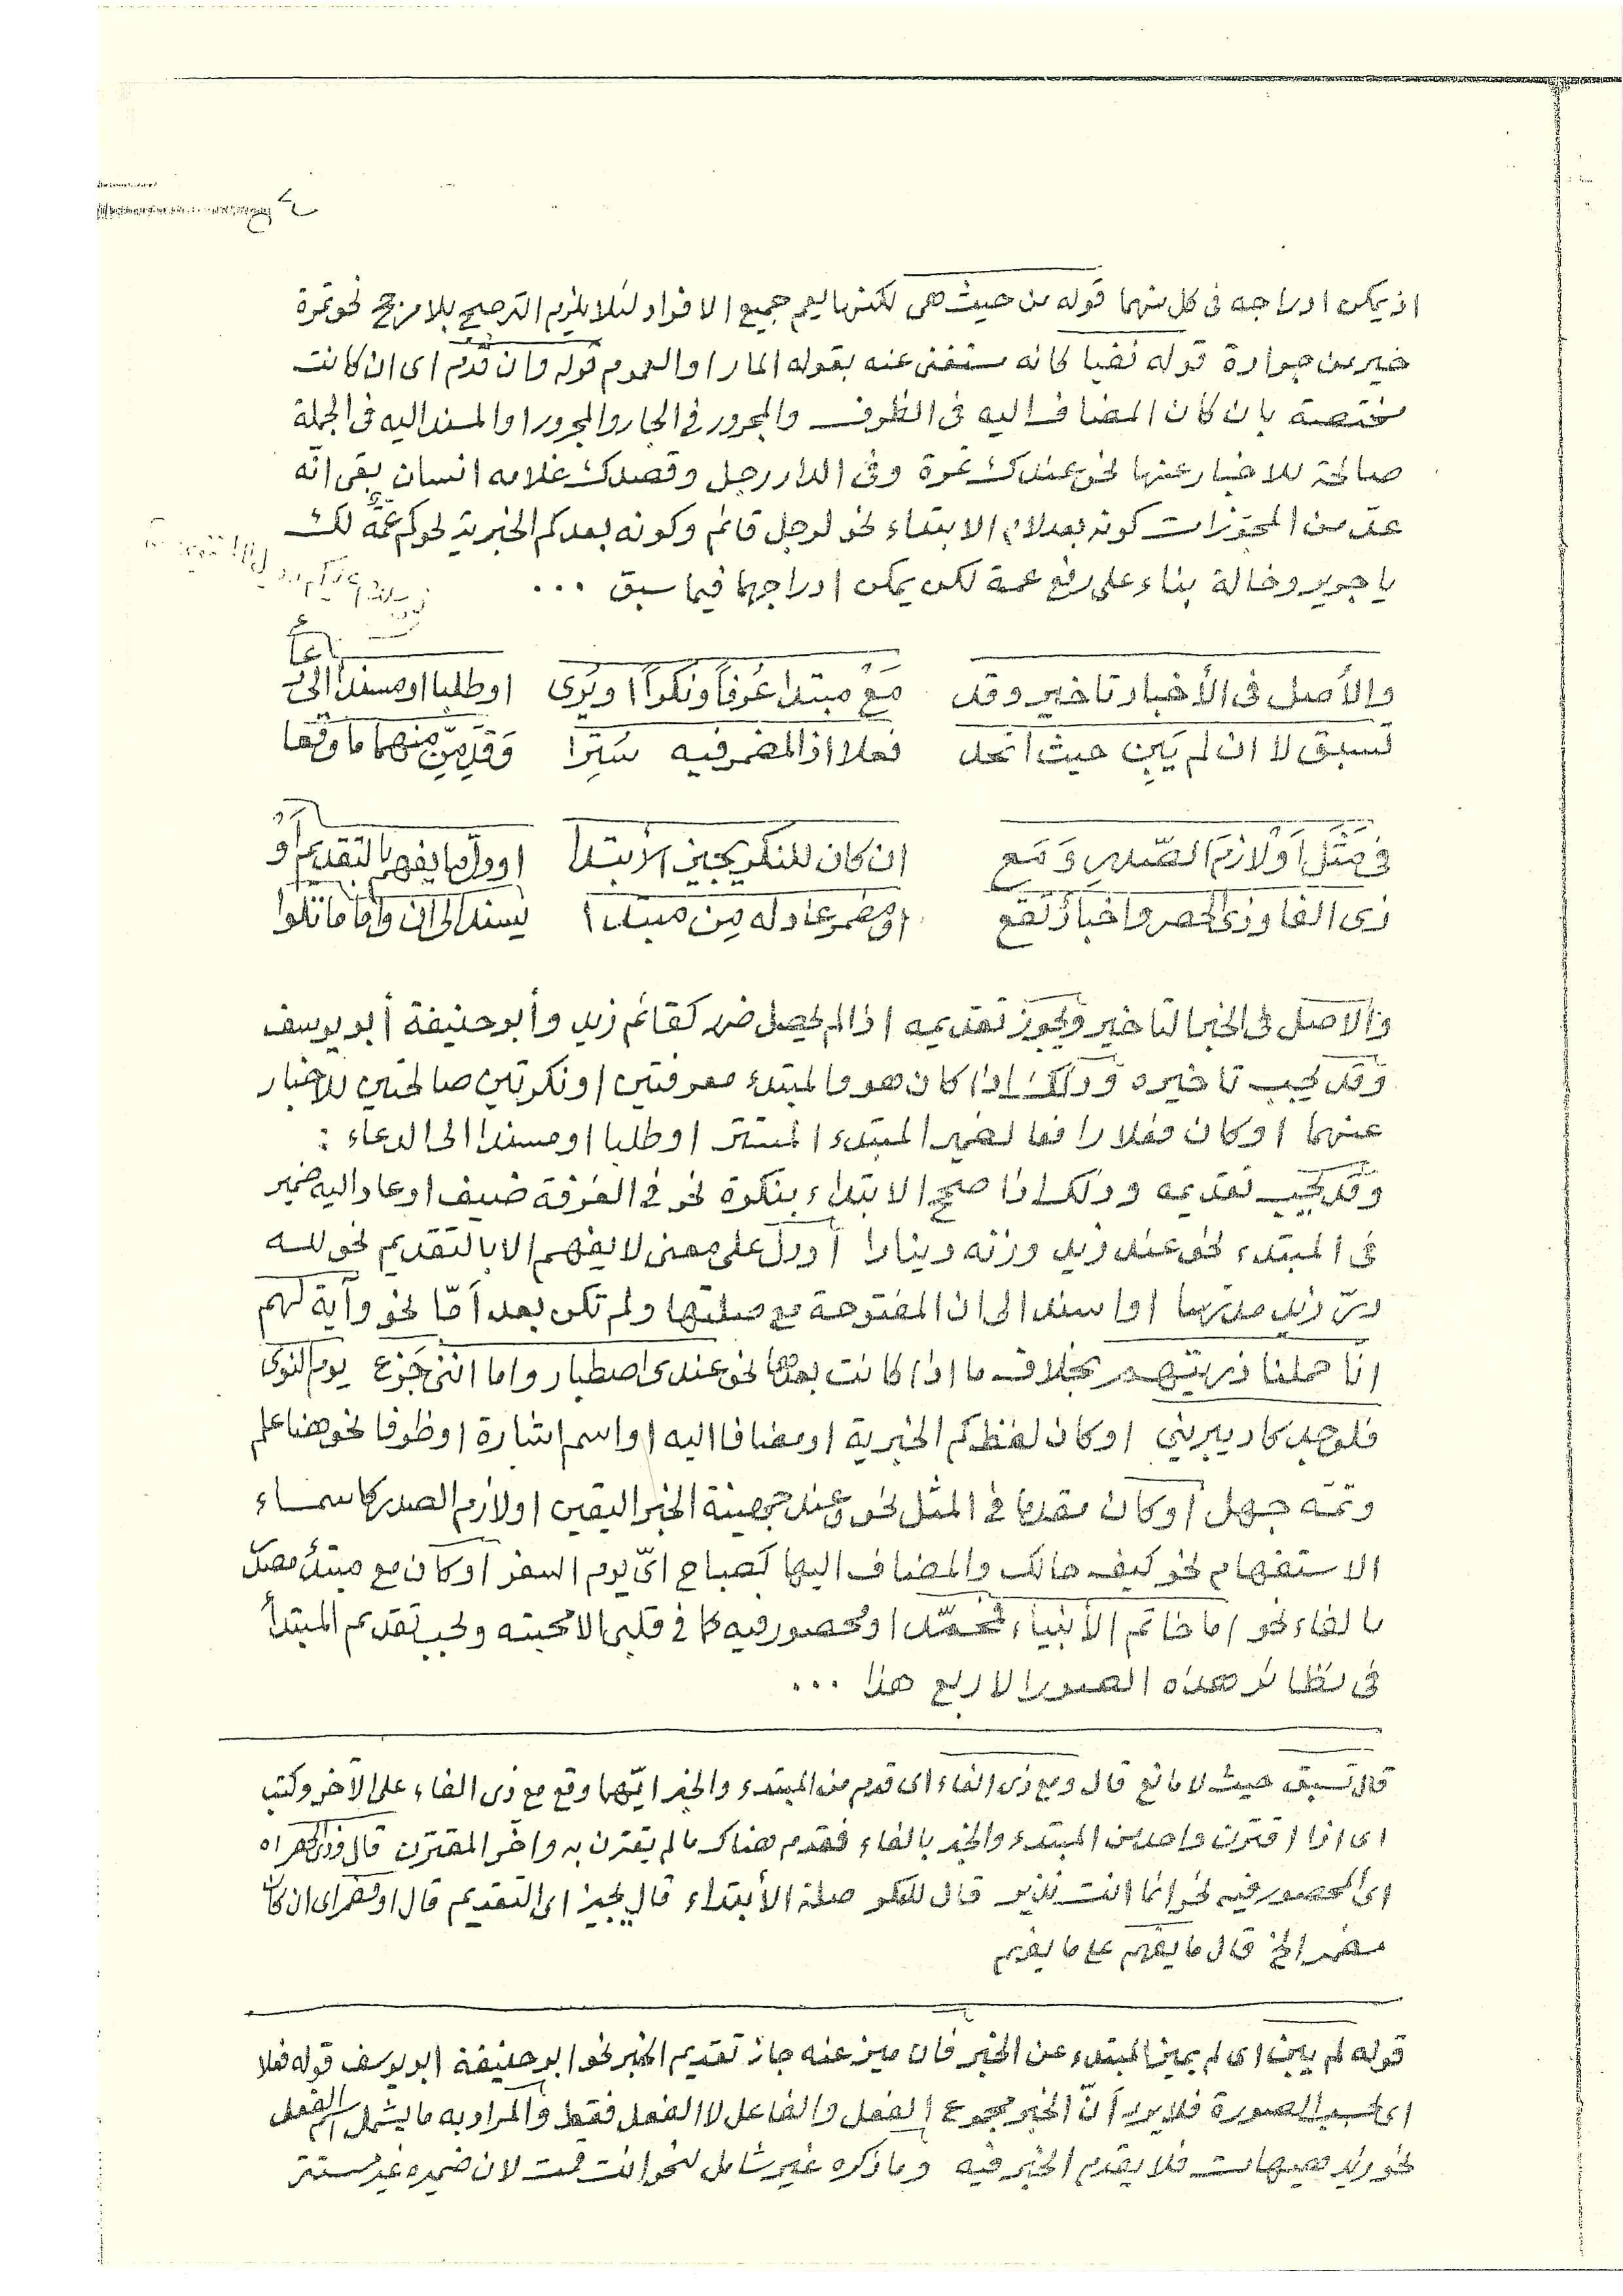 اذ يمكن ادراجه فى كل منهما قوله من حيث هى لكنها ليعم جميع الافراد لئلا يلزم الترجيح بلا مرجح نحو تمرة
خير من جرادة قوله نفيا كانه مستغنى عنه بقوله المار او العموم قوله وان قدم اى ان كانت
مختصة بان كان المضاف اليه فى الظرف والمجرور فى الجار والمجرور او المسند اليه فى الجملة
صالحة للاخبار عنها نحو عندك نمرة وفى الدار رجل وقصدك غلامه انسان بقى انّه
عدّ من المجوّزات كونه بعد لام الابتداء نحو لرجل قائم وكونه بعدكم الخبرية نحو كم عمّة لك
يا جرير وخالة بناء على رفع عمة لكن يمكن ادراجهما فيما سبق ...
والأصل فى الأخبار تاخير وقد مَعْ مبتدا عُرفاً ونكراً او يُرى او طلبا او مسنداً الى دعا
تسبق لا ان لم يَبِن حيث اتحد فعلا اذا المضمر فيه سُتِرَا وَقَدِّمَنّ منهما ما وقعا
فى مَثَل اَوْ لازمَ الصّدر وَمَع ان كان للنكر يجيز الأبتدا او دلّ ما يفهم بالتقديم أو
ذى الفا وذى الحصر واخبارٌ تقع او مضمر عاد له مِن مبتدا يُسند الى ان وامّا ما تلوا
والاصل فى الخبر التاخير ويجوز تقديمه اذا لم يحصل ضرر كقائم زيد وأبو حنيفة أبو يوسف
وقد يجب تاخيره وذلك اذا كان هو والمبتدء معرفتين او نكرتين صالحتين للاخبار
عنهما او كان فعلا رافعا لضمير المبتدء المستتر او طلبا او مسندا الى الدعاء :
وقد يجب تقديمه وذلك اذا صحح الابتداء بنكرة نحو فى الغرفة ضيف او عاد اليه ضمير
فى المبتدء نحو عند زيد وزنه دينارا أو دلّ على معنى لا يفهم الا بالتقديم نحو لله
درّ زيد او اسند الى ان المفتوحة مع صلتها ولم تكن بعد أمّا نحو وآية لهم
انّا حملنا ذريتهم بخلاف ما اذا كانت بعدها نحو عندى اصطبار واما اننى جَزِع يوم النوى
فلوجد كاد يبرينى او كان لفظ كم الخبرية او مضافا اليه او اسم اشارة او ظرفا نحو هنا علم
وثمّه جهل او كان مقدما فى المثل نحو وعند جهينة الخبر اليقين او لازم الصدر كاسماء
الاستفهام نحو كيف حالك والمضاف اليها كصباح اىّ يوم السفر او كان مع مبتدأ مصدّر
بالفاء نحو اما خاتم الأنبياء فمحمّد او محصور فيه كما فى قلبى الا محبته ويجب تقديم المبتدأ
فى نظائر هذه الصور الاربع هذا ...
قال تسبق حيث لا مانع قال ومع ذى الفاء اى قدم من المبتدء والخبر ايّهما وقع مع ذى الفاء على الآخر وكتب
اى اذا اقترن واحد من المبتدء والخبر بالفاء فقدم هناك ما لم يقترن به واخّر المقترن قال وذى الحصر اه
اى المحصور فيه نحو انما انت نذير قال للنكر صلة الأبتداء قال يجيز اى التقديم قال او مضمر اى ان كان
مضمر الخ قال ما يفهم
قوله لم يبن اى لم يميز المبتدء عن الخبر فان ميز عنه جاز تقديم الخبر نحو ابو حنيفة ابو يوسف قوله فعلا
اى بحسب الصورة فلا يرد أنّ الخبر مجموع الفعل والفاعل لا الفعل فقط والمراد به ما يشمل اسم الفعل
نحو زيد هيهات فلا يقدم الخبر فيه وما ذكره غير شامل لنحو انت قمت لان ضميره غير مستتر